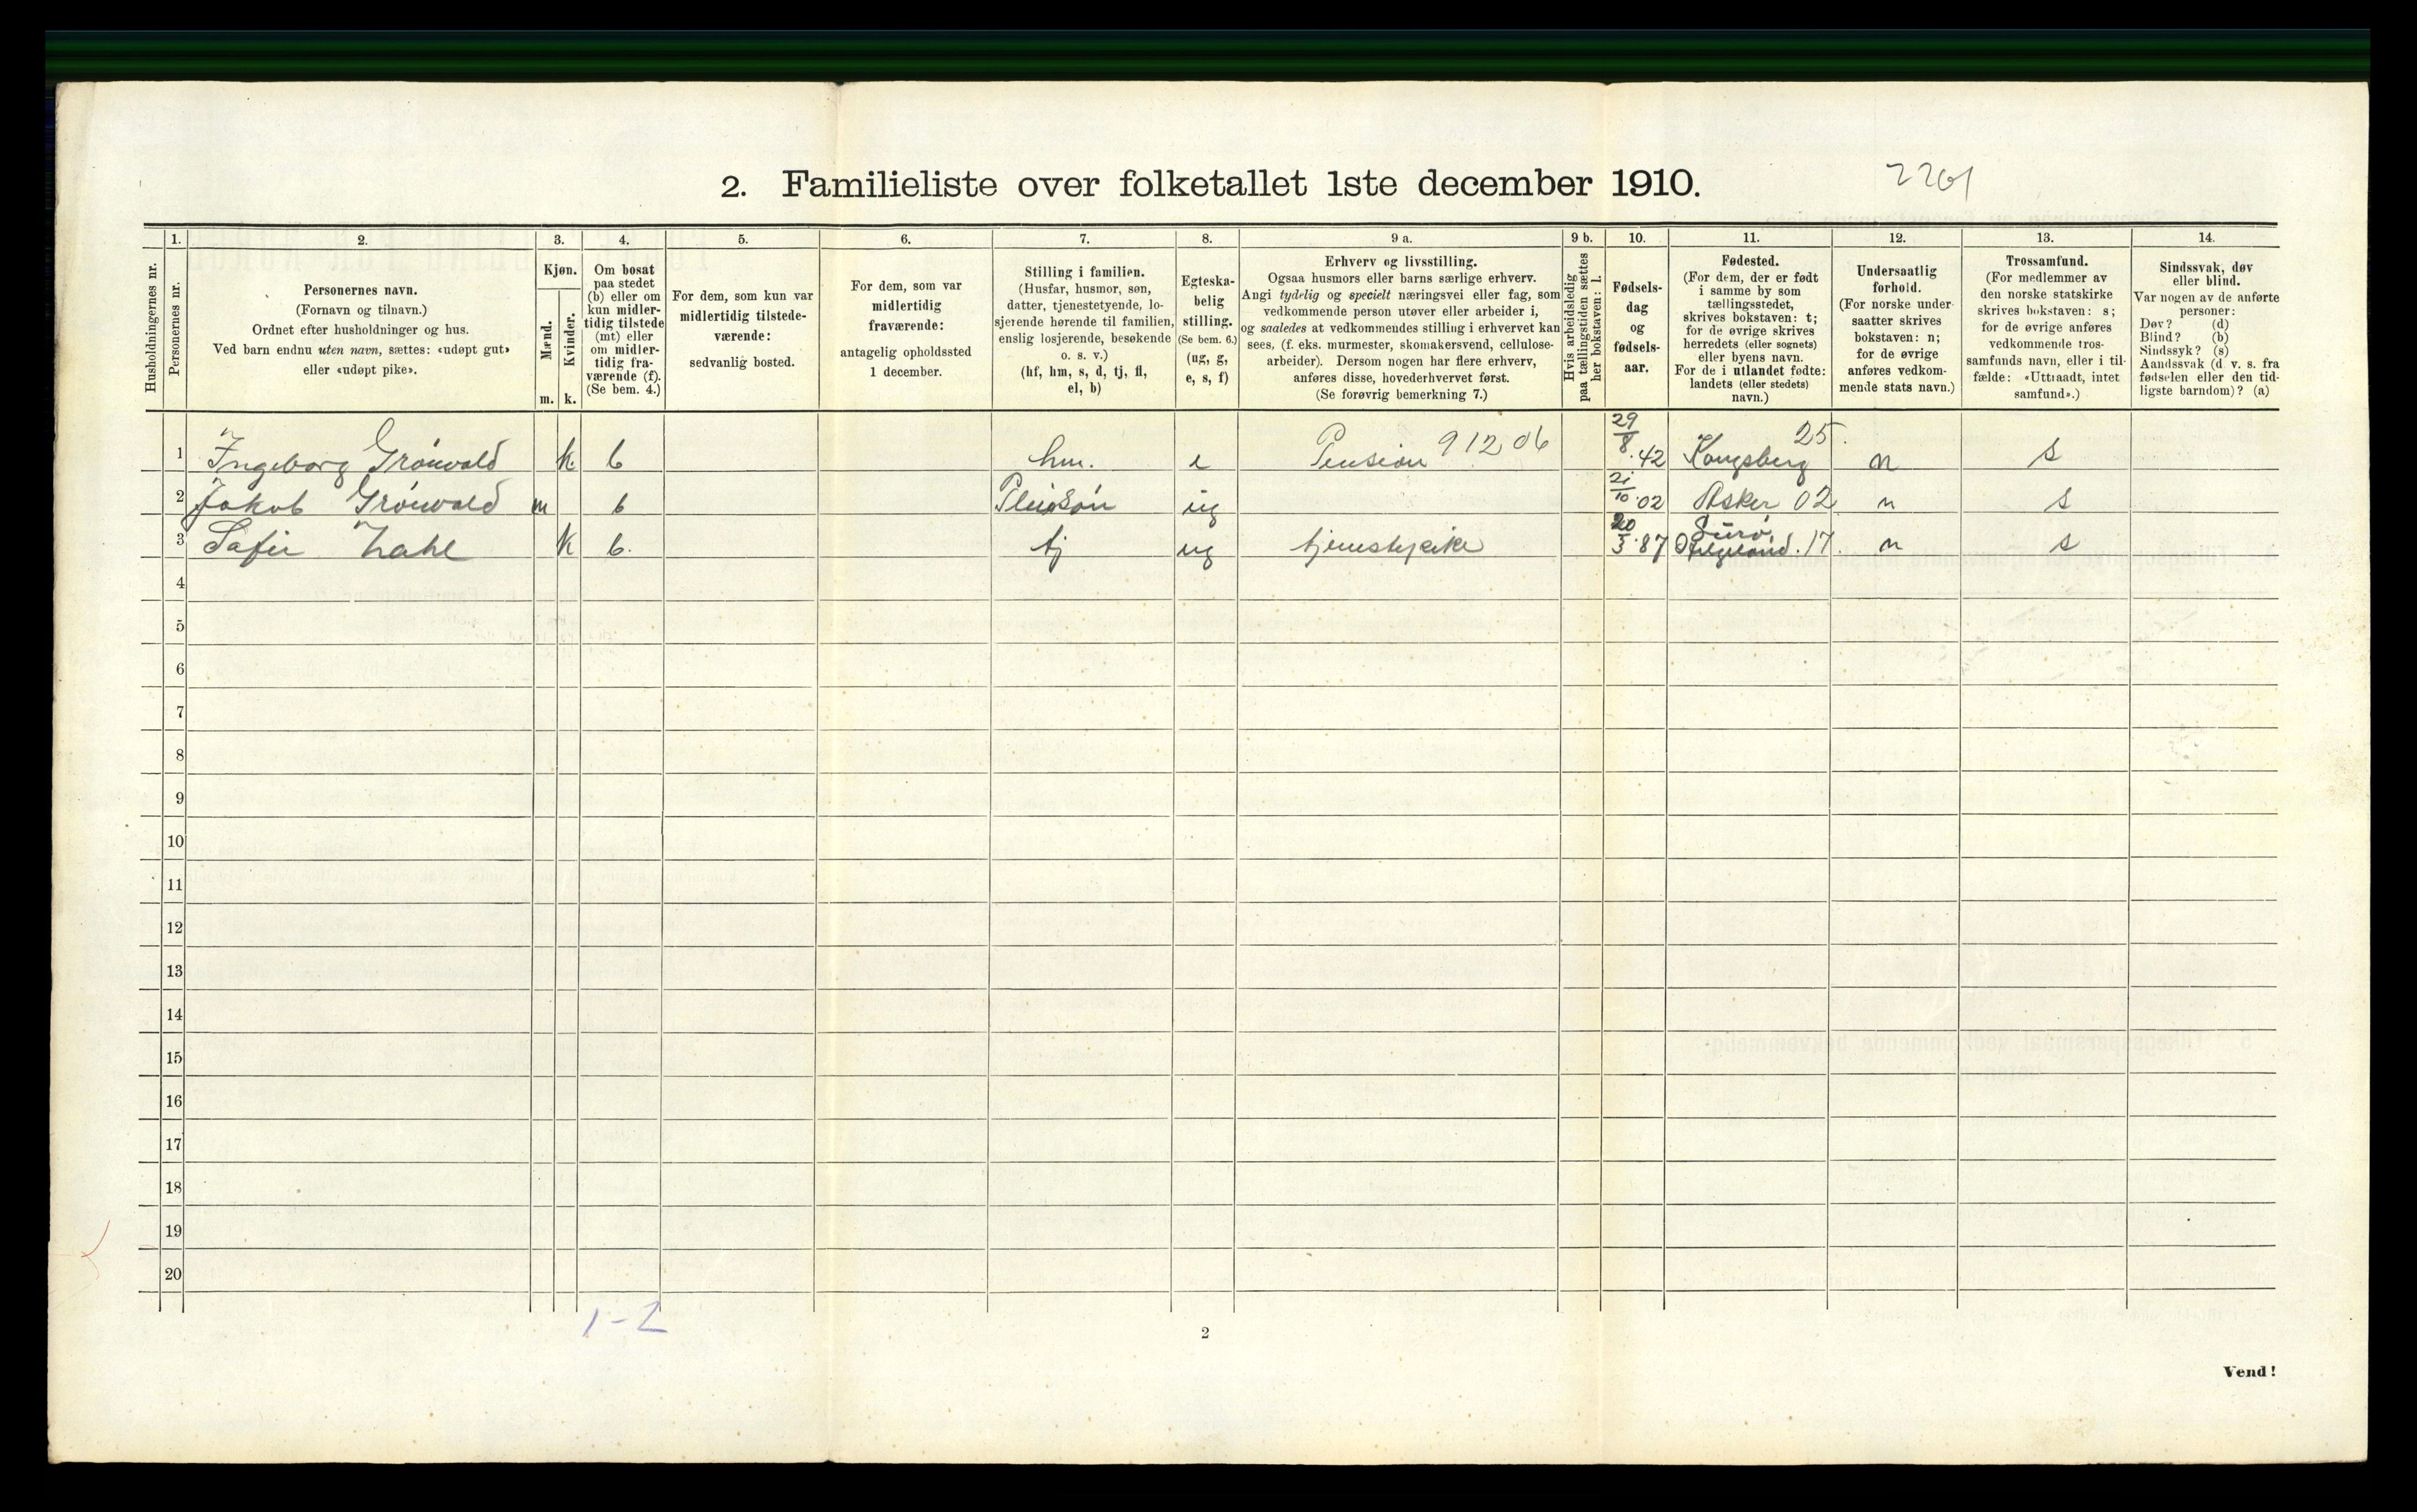 2. Familieliste over folketallet 1ste december 1910.
2201
1. 2. 3. 4. 5. 6. 7. 8. 9 a. 9 b. 10. 11. 12. 13. 14.
Husholdningernes nr.
Personernes nr.
Personernes navn.
(Fornavn og tilnavn.)
Ordnet efter husholdninger og hus.
Ved barn endnu uten navn, sættes: «udøpt gut»
eller «udøpt pike».
Kjøn.
Mænd.
Kvinder.
m. k.
Om bosat
paa stedet
(b) eller om
kun midler-
tidig tilstede
(mt) eller
om midler-
tidig fra-
værende (f).
(Se bem. 4.)
For dem, som kun var
midlertidig tilstede-
værende:
sedvanlig bosted.
For dem, som var
midlertidig
fraværende:
antagelig opholdssted
1 december.
Stilling i familien.
(Husfar, husmor, søn,
datter, tjenestetyende, lo-
sjerende hørende til familien,
enslig losjerende, besøkende
o. s. v.)
(hf, hm, s, d, tj, fl,
el, b)
Egteska-
belig
stilling.
(Se bem. 6.)
(ug, g,
e, s, f)
Erhverv og livsstilling.
Ogsaa husmors eller barns særlige erhverv.
Angi tydelig og specielt næringsvei eller fag, som
vedkommende person utøver eller arbeider i,
og saaledes at vedkommendes stilling i erhvervet kan
sees, (f. eks. murmester, skomakersvend, cellulose-
arbeider). Dersom nogen har flere erhverv,
anføres disse, hovederhvervet først.
(Se forøvrig bemerkning 7.)
Hvis arbeidsledig
paa tællingstiden sættes
her bokstaven: l.
Fødsels-
dag
og
fødsels-
aar.
Fødested.
(For dem, der er født
i samme by som
tællingsstedet,
skrives bokstaven: t;
for de øvrige skrives
herredets (eller sognets)
eller byens navn.
For de i utlandet fødte:
landets (eller stedets)
navn.)
Undersaatlig
forhold.
(For norske under-
saatter skrives
bokstaven: n;
for de øvrige
anføres vedkom-
mende stats navn.)
Trossamfund.
(For medlemmer av
den norske statskirke
skrives bokstaven: s;
for de øvrige anføres
vedkommende tros-
samfunds navn, eller i til-
fælde: «Uttraadt, intet
samfund».)
Sindssvak, døv
eller blind.
Var nogen av de anførte
personer:
Døv? (d)
Blind? (b)
Sindssyk? (s)
Aandssvak (d. v. s. fra
fødselen eller den tid-
ligste barndom)? (a)
1 Ingeborg Grönvold k. b hm. e Pension 91206 29/8.42 Kongsberg 25. n s
2 Jakob Grönvold m b Pleiesön ug 21/10.02 Asker 02 n s
3 Sofie Zahl k b. tj ug tjenestepike 20/3.87 Helgeland.17. n s
4
5
6
7
8
9
10
11
12
13
14
15
16
17
18
19
20
1-2
2
Vend!